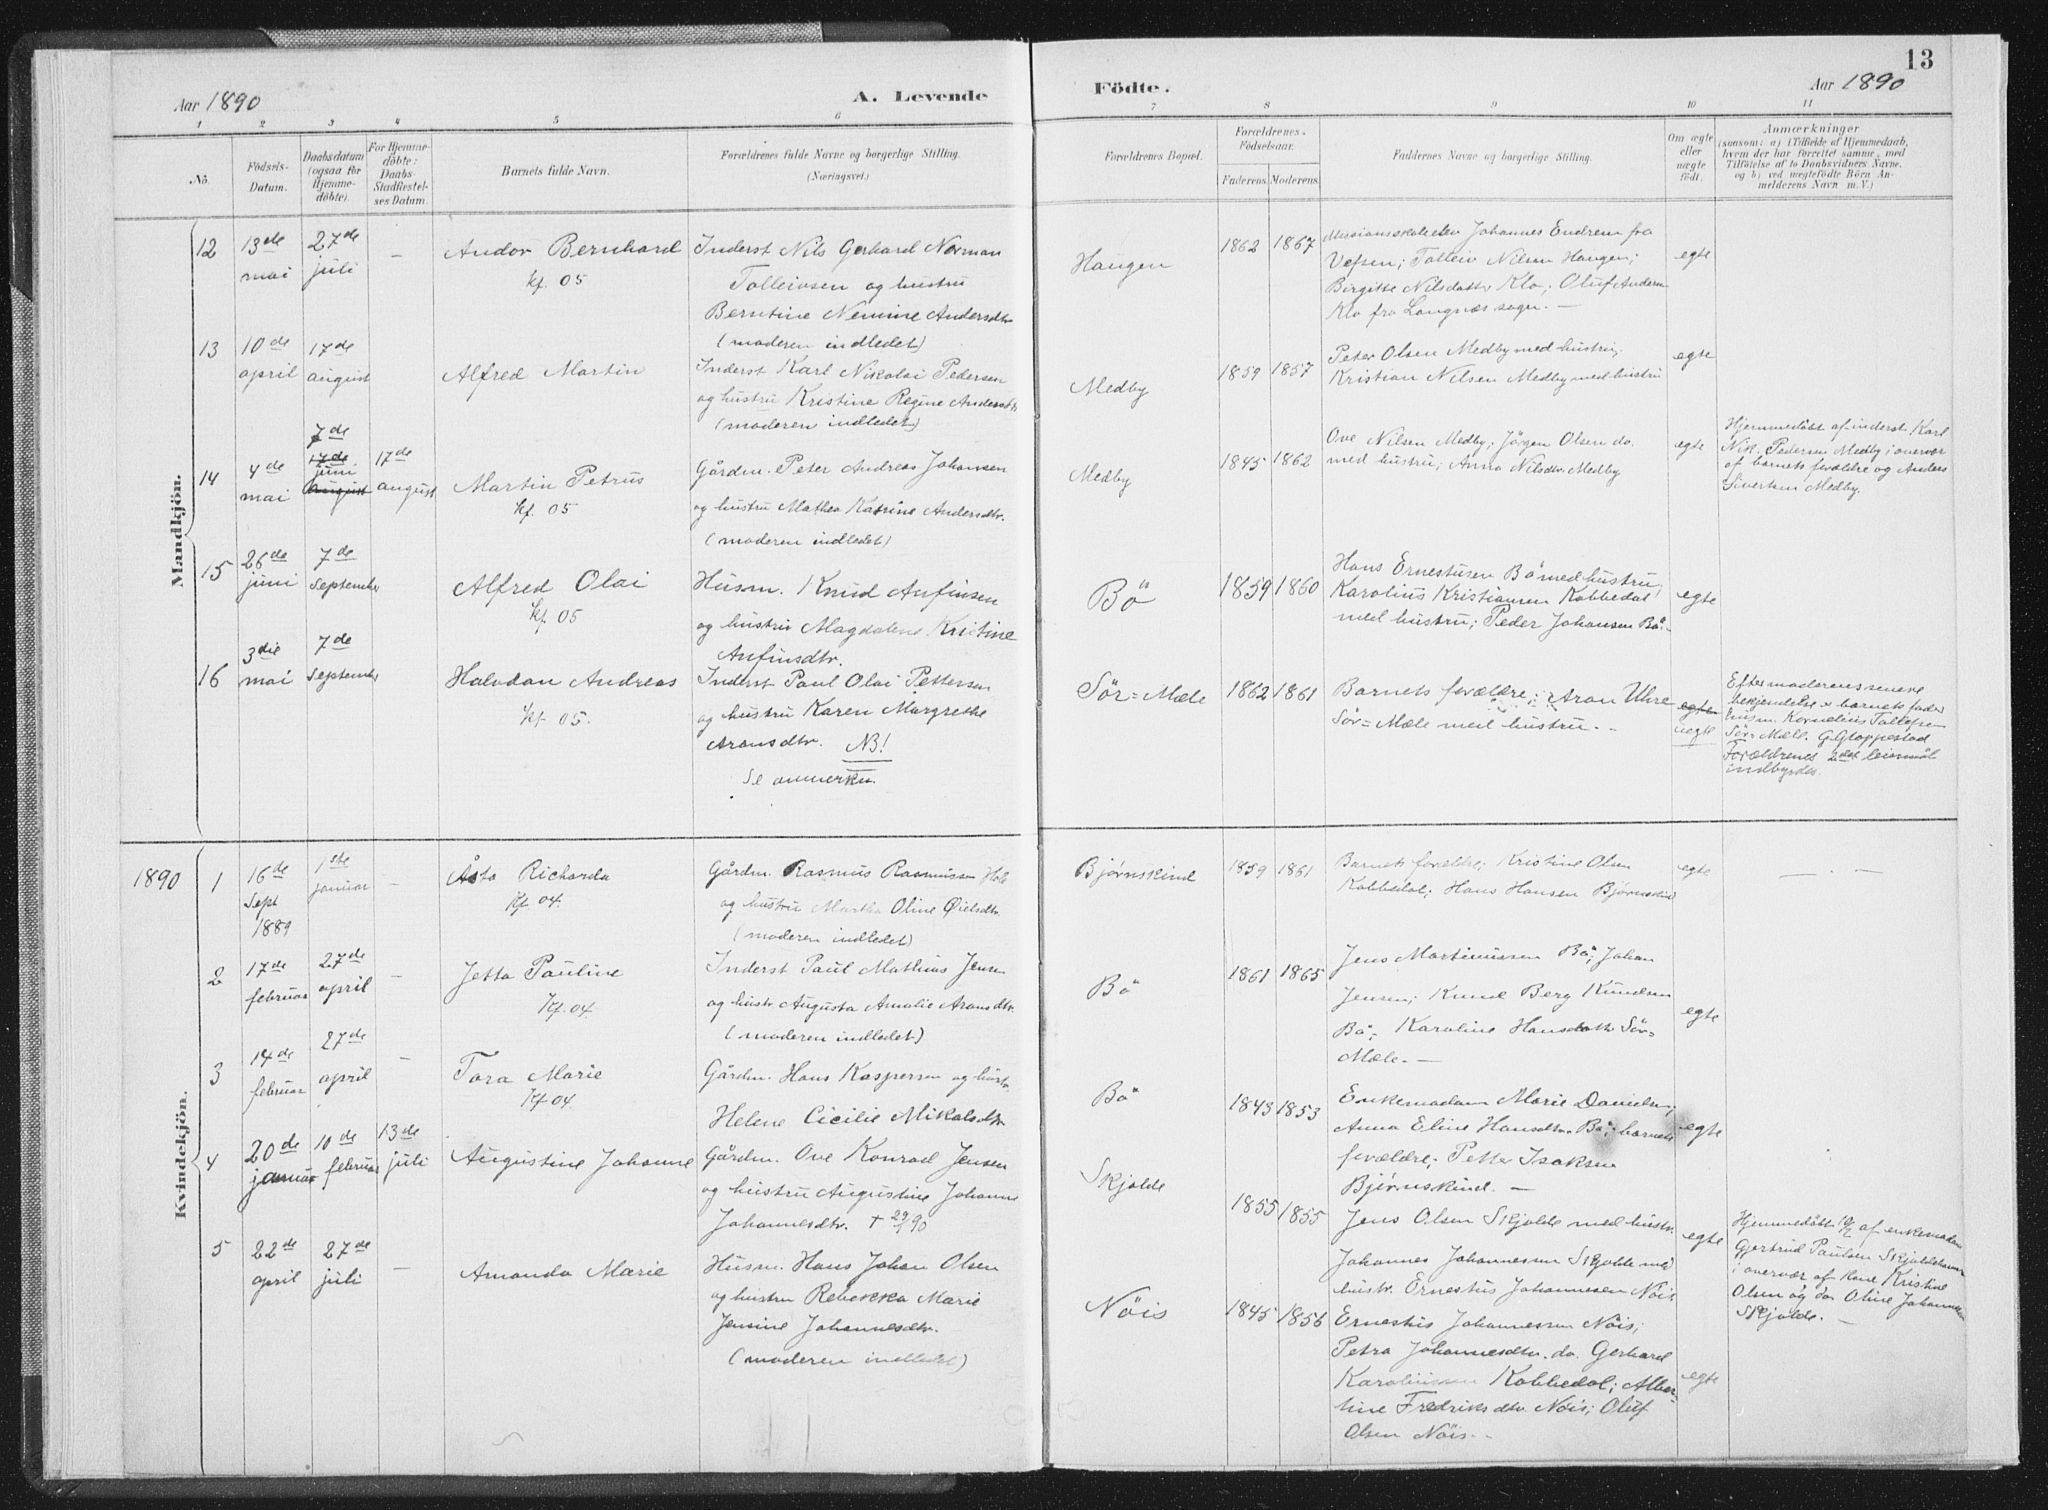 13
Aar 1890
A. Levende
Födte.
Aar 1890
1 2 3 4 5 6 7 8 9 10 11
No.
Födsels-
Datum.
Daabsdatum
(ogsaa for
Hjemme-
döbte).
For Hjemme-
döbte:
Daabs-
Stadfæstel-
ses Datum.
Barnets fulde Navn.
Forældrenes fulde Navne og borgerlige Stilling.
(Næringsvei.)
Forældrenes Bopæl.
Forældrenes
Födselsaar.
Faderens. Moderens.
Faddernes Navne og borgerlige Stilling.
Om ægte
eller
uægte
født.
Anmærkninger
(saasom: a) i Tilfælde af Hjemmedaab,
hvem der har forrettet samme, med
Tilföielse af to Daabsvidners Navne.
og b) ved uægtefödte Börn An-
melderens Navn m. V.)
Mandkjön.
12
13de
mai
27de
juli
-
Andor Bernhard
kf. 05
Inderst Nils Gerhard Norman
Tolleivsen og hustru
Berntine Nemine Andersdtr
(moderen indledet)
Haugen
1862 1867
Missionsskoleelev Johannes Endrem fra
Vefsen; Tolleiv Nilsen Haugen;
Birgitte Nilsdatter Klo; Oluf Andersen
Klo fra Langnæs sogn. -
egte
13
10de
april
17de
august
Alfred Martin
Inderst Karl Nikolai Pedersen
og hustru Kristine Regine Andersdtr
(moderen indledet)
Medby
1859 1857
Peter Olsen Medby med hustru;
Kristian Nilsen Medby med hustru
egte
14
4de
mai
7de
17de
juni
august
17de
august
Martin Petrus
kf. 05
Gårdm. Peter Andreas Johansen
og hustru Mathea Katrine Andersdtr.
(moderen indledet)
Medby
1845 1862
Ove Nilsen Medby; Jörgen Olsen do.
med hustru; Anna Nilsdtr. Medby
egte
Hjemmedöbt af inderst Karl
Nik. Pedersen Medby i overvær
af barnets forældre og Anders
Sivertsen Medby.
15
26de
juni
7de
September
Alfred Olai
kf. 05
Husm. Knud Anfinsen
og hustru Magdalene Kristine
Anfinsdtr.
Bö
1859 1860
Hans Ernestusen Bö med hustru;
Karolius Kristiansen Kobbedal
med hustru; Peder Johansen Bö.-
egte
16
3die
mai
7de
September
Halvdan Andreas
kf. 05.
Inderst Paul Olai Pettersen
og hustru Karen Margrethe
Aronsdtr. NB!
Se anmerkn.
Sör=Mæle
1862 1861
Barnets forældre; Aron Uhre
Sör=Mæle med hustru. -
egte
uegte
Efter moderens senere
bekjendelse er barnets fader
husm. Kornelius Tollefsen
Sör=Mæle. G. Gloppestad
Forældrenes 2det leiermål
indbyrdes.
Kvindekjön.
1890
1
16de
Sept
1889
1ste
januar
-
Åsta Richarda
Kf. 04.
Gårdm. Rasmus Rasmussen Hole
og hustru Martha Oline Øielsdtr.
(moderen indledet)
Bjørnskind
1859 1861
Barnets forældre; Kristine Olsen
Kobbedal; Hans Hansen Bjørnskind
egte
- . -
2
17de
februar
27de
april
-
Jetta Pauline
Kf. 04.
Inderst Paul Mathias Jensen
og hustr. Augusta Amalie Aronsdtr.
(moderen indledet)
Bö
1861 1865
Jens Martinussen Bö; Johan
Jensen; Knud Berg Knudsen
Bö; Karoline Hansdatter Sör-
Mæle. -
egte
3
14de
februar
27de
april
-
Tora Marie
Kf 04.
Gårdm. Hans Kaspersen og hustr
Helene Cicilie Mikalsdtr
Bö
1843 1853
Enkemadam Marie Danielsen;
Anna Eline Hansdtr. Bö; barnets
forældre; Petter Isaksen
Bjørnskind. -
egte
4
20de
januar
10de
februar
13de
juli
Augustine Johanne
Gårdm. Ove Konrad Jensen
og hustru Augustine Johanne
Johannesdtr. + 29/1 90
Skjolde
1855 1855
Jens Olsen Skjolde med hustr.
Johannes Johannessen Skjolde med
hustr. Ernestus Johannesen Nöis
egte
Hjemmedöbt 10/2 af enkemadam
Gjertrud Paulsen Skjoldehavn
i overvær af kone Kristine
Olsen og do Oline Johannesen
Skjolde. -
5
22de
april
27de
juli
-
Amanda Marie
Husm. Hans Johan Olsen
og hustru Rebekka Marie
Jensine Johannesdtr.
(moderen indledet)
Nöis
1845 1856
Ernestus Johannessen Nöis;
Petra Johannesdtr. do. Gerhard
Karoliussen Kobbedal; Alber-
tine Fredriksdtr Nöis; Oluf
Olsen Nöis. -
egte